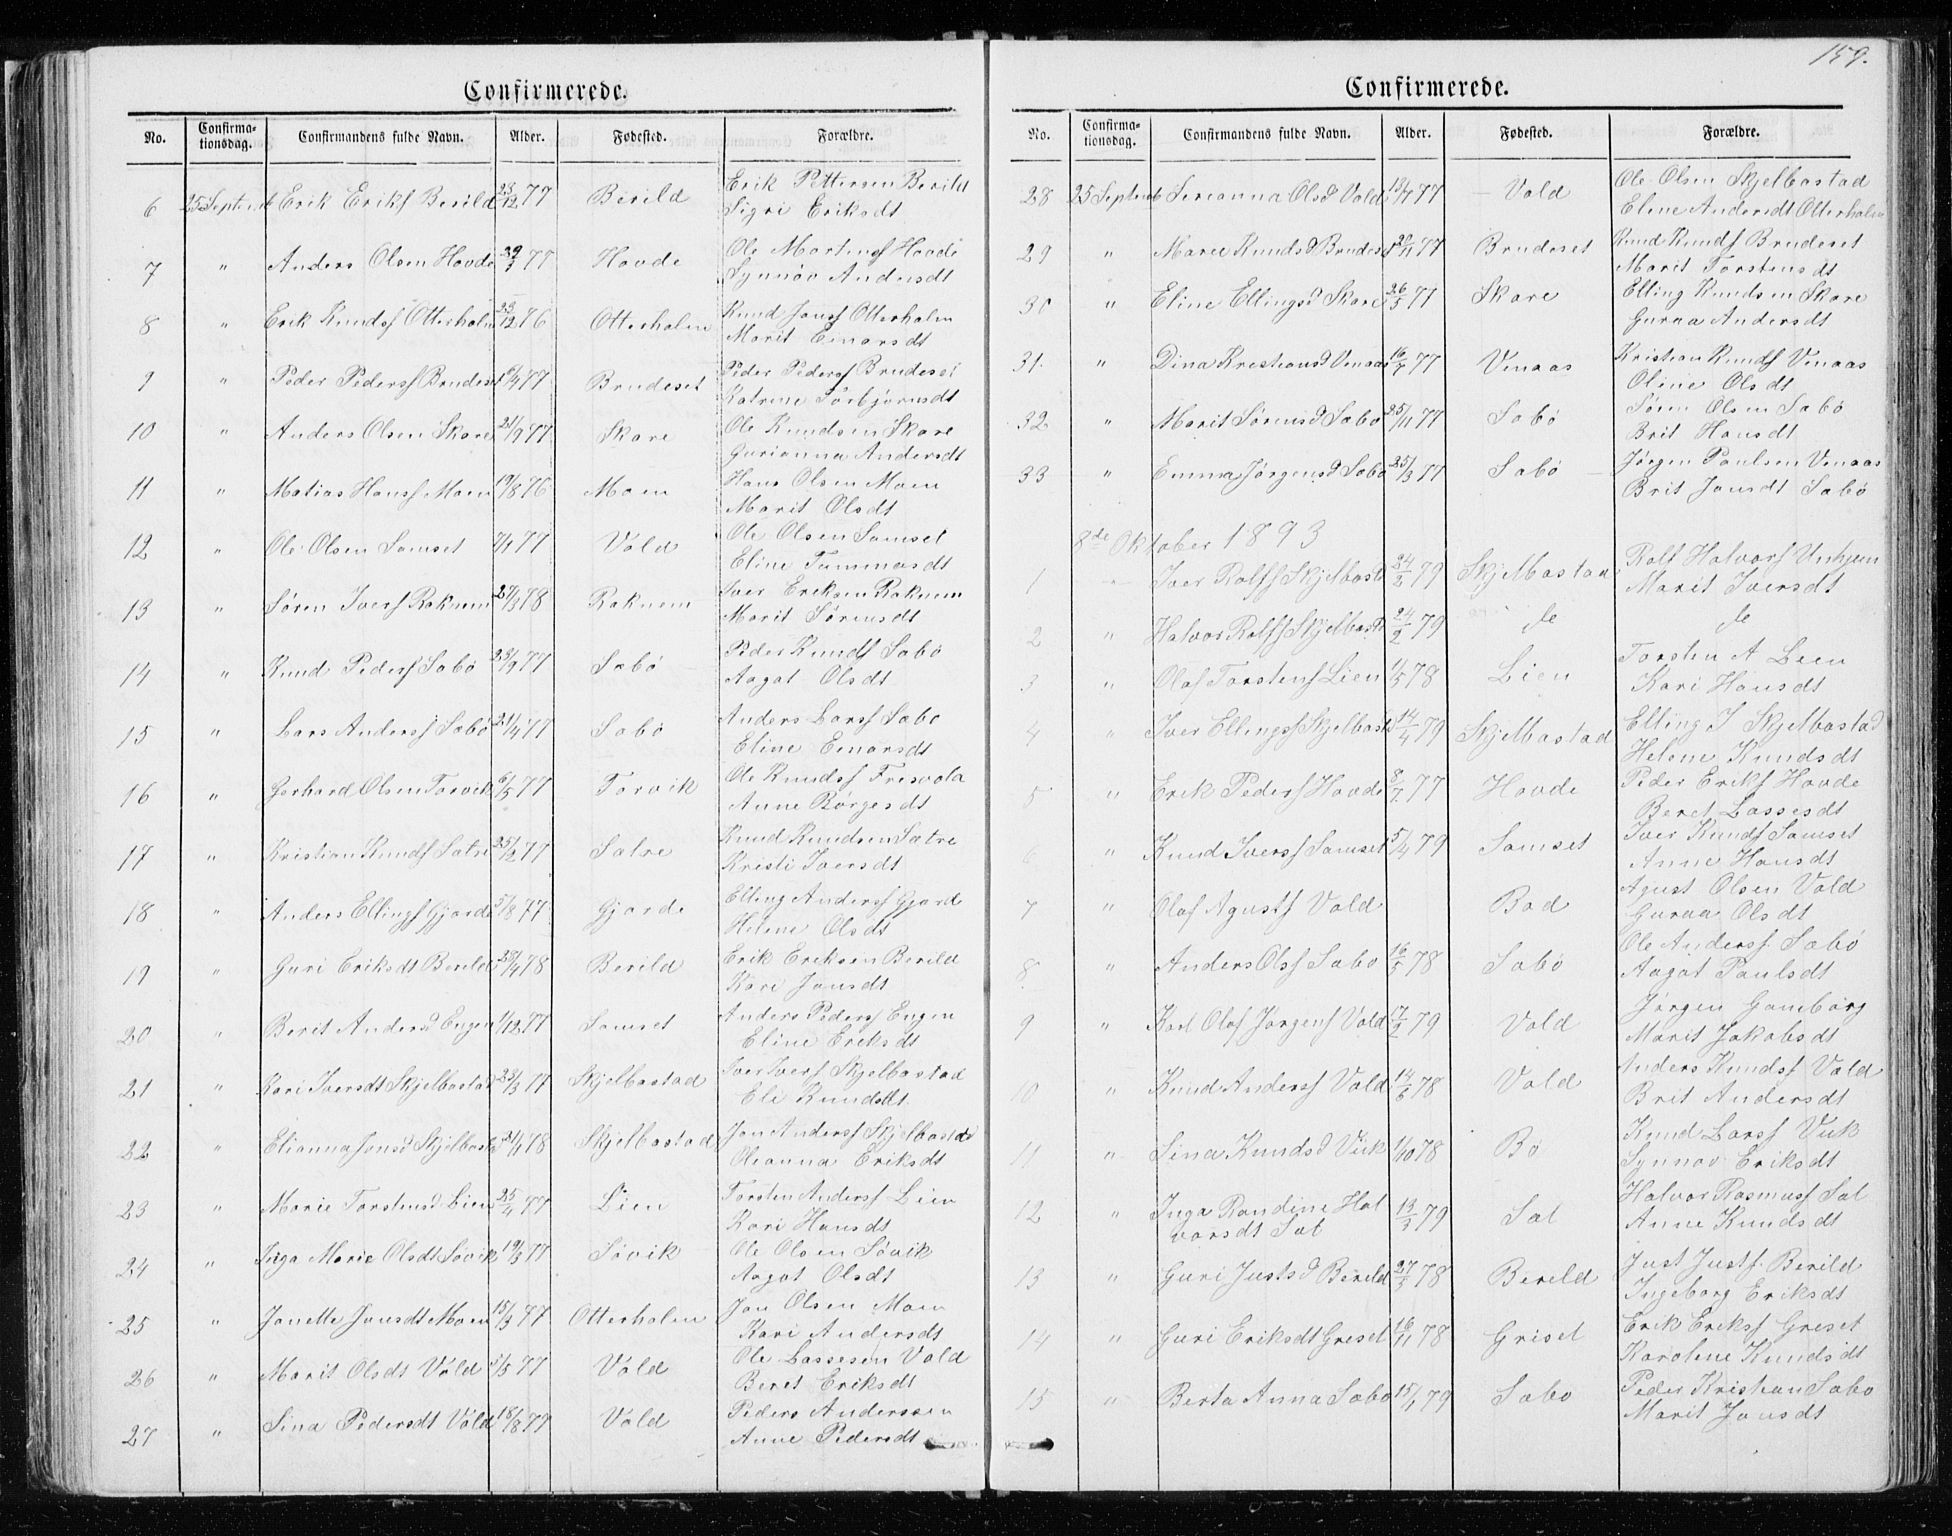 159.
Confirmerede.
No. Confirmationsdag. Confirmandens fulde Navn. Alder. Fødested. Forældre.
6 25 Septemb Erik Eriks Berild 23/12 77 Berild Erik Pettersen Berild
Sigri Eriksdt
7 " Anders Olsen Hovde 77 Hovde Ole Hovde
Synnøv Andersdt
8 " Erik Knuds Otterholm 23/12 76 Otterholm Knud Jons Otterholm
Marit Einarsdt
9 " Peder Peders Brudeset 77 Brudeset Peder Peders Brudeset
Katrine Torbjørnsdt
10 " Anders Olsen Skare 21/9 77 Skare Ole Knudsen Skare
Gurianna Andersdt
11 " Matias Hans Moen 19/8 76 Moen Hans Olsen Moen
Marit Olsdt
12 " Ole Olsen Samset 77 Vold Ole Olsen Samset
Eline Tommasdt
13 " Søren Ivers Raknem 78 Raknem Iver Eriksen Raknem
Marit Sørensdt
14 " Knud Peders Sabø 23/9 77 Sabø Peder Knuds Sabø
Aagot Olsdt
15 " Lars Anders Sabø 21/4 77 Sabø Anders Lars Sabø
Eline Einarsdt
16 " Gerhard Olsen Torvik 6/5 77 Torvik Ole Knuds
Anne Børgesdt
17 " Kristian Knuds Satre 25/2 77 Satre Knud Knudsen Satre
Kristi Iversdt
18 " Anders Ellings Gjorde 5/8 77 Gjorde Elling Anders Gjorde
Helene Olsdt
19 " Guri Eriksdt Berild 78 Berild Erik Eriksen Berild
Kari Jonsdt
20 " Berit Andersd Engen 1/12 77 Samset Anders Peders Engen
Eline Eriksdt
21 " Kari Iversdt Skjelbostad 28/3 77 Skjelbostad Iver Ivers Skjelbostad
Eli Knudsdt
22 " Elianna Jonsd Skjelbost 21/1 78 Skjelbostad Jon Anders Skjelbostad
Oleanna Eriksdt
23 " Marie Torstensd Lien 77 Lien Torsten Anders Lien
Kari Hansdt
24 " Inga Marie Olsdt Søvik 19/3 77 Søvik Ole Olsen Søvik
Aagot Olsdt
25 " Janette Jonsdt Moen 15/3 77 Otterholm Jon Olsen Moen
Kari Andersdt
26 " Marit Olsdt Vold 77 Vold Ole Lassesen Vold
Beret Eriksdt
27 " Sina Pedersdt Vold 18/8 77 Vold Peders Anderssen
Anne Pedersdt
Confirmerede.
No. Confirmationsdag. Confirmandens fulde Navn. Alder. Fødested. Forældre.
28 25 Septemb Serianna Olsd Vold 77 Vold Ole Olsen Skjelbostad
Eline Andersdt Otterholm
29 " Maree Knudsd Brudeset 77 Brudeset Knud Knuds Brudeset
Marit Torstensdt
30 " Eline Ellingsd Skare 26/5 77 Skare Elling Knudsen Skare
Guraa Andersdt
31. " Dina Kristiansd Venaas 16/7 77 Venaas Kristian Knuds Venaas
Oline Olsdt
32 " Marit Sørensd Sabø 25/11 77 Sabø Søren Olsen Sabø
Brit Hansdt
33 " Emma Jørgensd Sabø 25/3 77 Sabø Jørgen Paulsen Venaas
Brit Jonsdt Sabø
8de Oktober 1893
1 " Iver Rolfs Skjelbost 24/2 79 Skjelbostad Rolf Halvors Unhjem
Marit Iversdt
2 " Halvor Rolfs Skjelbost 24/2 79 do do
3 " Olaf Torstens Lien 1/5 78 Lien Torsten A Lien
Kari Hansdt
4 " Iver Ellings Skjelbost 14/4 79 Skjelbostad Elling I Skjelbostad
Helene Knudsdt
5 " Erik Peders Hovde 8/7 77 Hovde Peder Eriks Hovde
Beret Lassesdt
6 " Knud Ivers Samset 5/4 79 Samset Iver Knuds Samset
Anne Hansdt
7 " Olaf Agusts Vold Bod Agust Olsen Vold
Guraa Olsdt
8 " Anders Ols Sabø 16/5 78 Sabø Ole Anders Sabø
Aagot Paulsdt
9 " Karl Olaf Jørgens Vold 17/2 79 Vold Jørgen Gamborg
Marit Jakobsdt
10 " Knud Anders Vold 14/6 78 Vold Anders Knuds Vold
Brit Andersdt
11 " Sina Knudsd Vik 1/10 78 Bø Knud Lars Vik
Synnøv Eriksdt
12 " Inga Randine Hal 13/3 79 Sæt Halvor Rasmus Sæt
varsdt Sæt Anne Knudsdt
13 " Guri Justsd Berild 27/5 78 Berild Just Justs. Berild
Ingeborg Eriksdt
14 " Guri Eriksdt Griset 16/11 78 Griset Erik Eriks Griset
Karolene Knudsdt
15 " Berta Anna Sabø 15/1 79 Sabø Peder Kristian Sabø
Marit Jonsdt